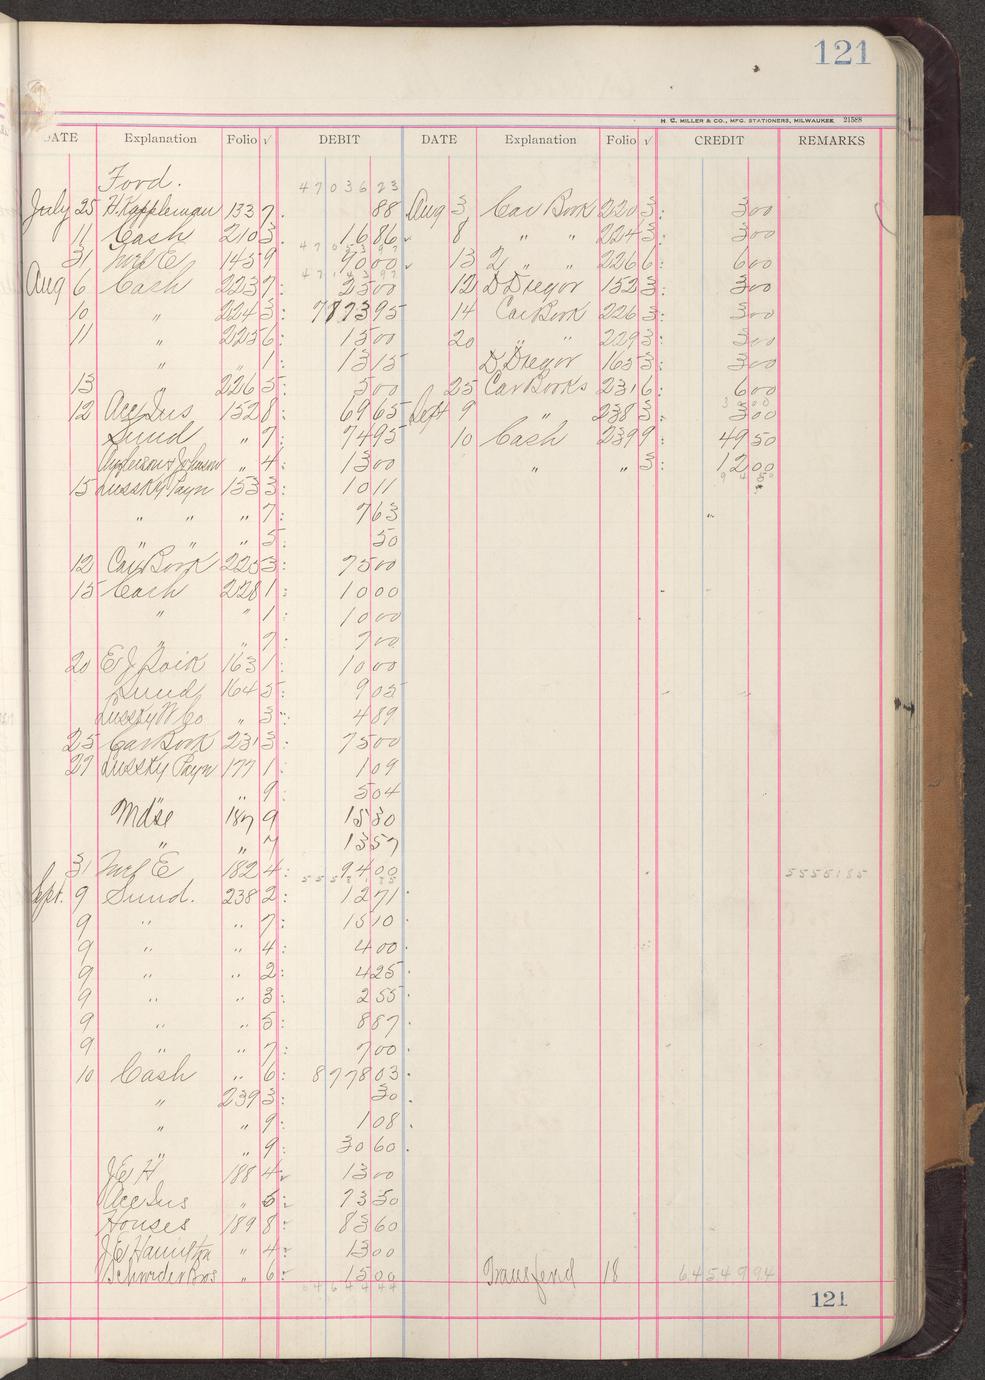 121
H. C. MILLER & CO., MFG. STATIONERS, MILWAUKEE 21588
DATE Explanation Folio √ DEBIT DATE Explanation Folio √ CREDIT REMARKS
Ford. 47036 23
July 25 H. Kappleman 133 7. 88 Aug 3 Car Book 220 3: 3 00
11 Cash 210 3: 16 86 8 " " 224 3: 3 00
31 Mfg E 145 9 90 00 13 2 " " 226 6: 6 00
Aug 6 Cash 223 7: 25 00 12 D Dregor 152 3: 3 00
10 " 224 3: 7873 95 14 Car Book 226 3: 3 00
11 " 225 6: 15 00 20 " " 229 3: 3 00
" 1: 13 15 D. Dregor 165 3: 3 00
13 " 226 5: 5 00 25 Car Books 231 6: 6 00
12 Acc Ins 152 8: 69 65 Sept 9 " 238 3: 3 00
Sund " 7: 74 95 10 Cash 239 9: 49 50
Johnson " 4: 13 00 " " 3: 12 00
15 Lussky Payn 153 3: 10 11
" " " 7: 7 63
" " " 5: 50
12 Car Book 225 3: 75 00
15 Cash 228 1: 10 00
" " 1: 10 00
" " 7: 7 00
20 E J 163 1: 10 00
Sund 164 5: 9 05
Lussky W Co " 3: 4 89
25 Car Book 231 3: 75 00
27 Lussky Payn 177 1: 1 09
" 9: 5 04
Mdse 187 9 15 30
" " 7 13 57
31 Mfg E 182 4: 94 00
55551 85
Sept. 9 Sund. 238 2: 12 71
9 " " 7: 15 10
9 " " 4: 4 00
9 " " 2: 4 25
9 " " 3: 2 55
9 " " 5: 8 87
9 " " 7: 7 00
10 Cash " 6: 8778 03
" 239 3: 30
" " 9: 1 08
" " 9: 30 60
J E H 188 4 13 00
Acc Ins " 5: 73 50
Houses 189 8: 83 60
J E Hamilton " 4: 13 00
Schroder Bros " 6: 15 00 Transferd 18 64549 94
64644 44
121